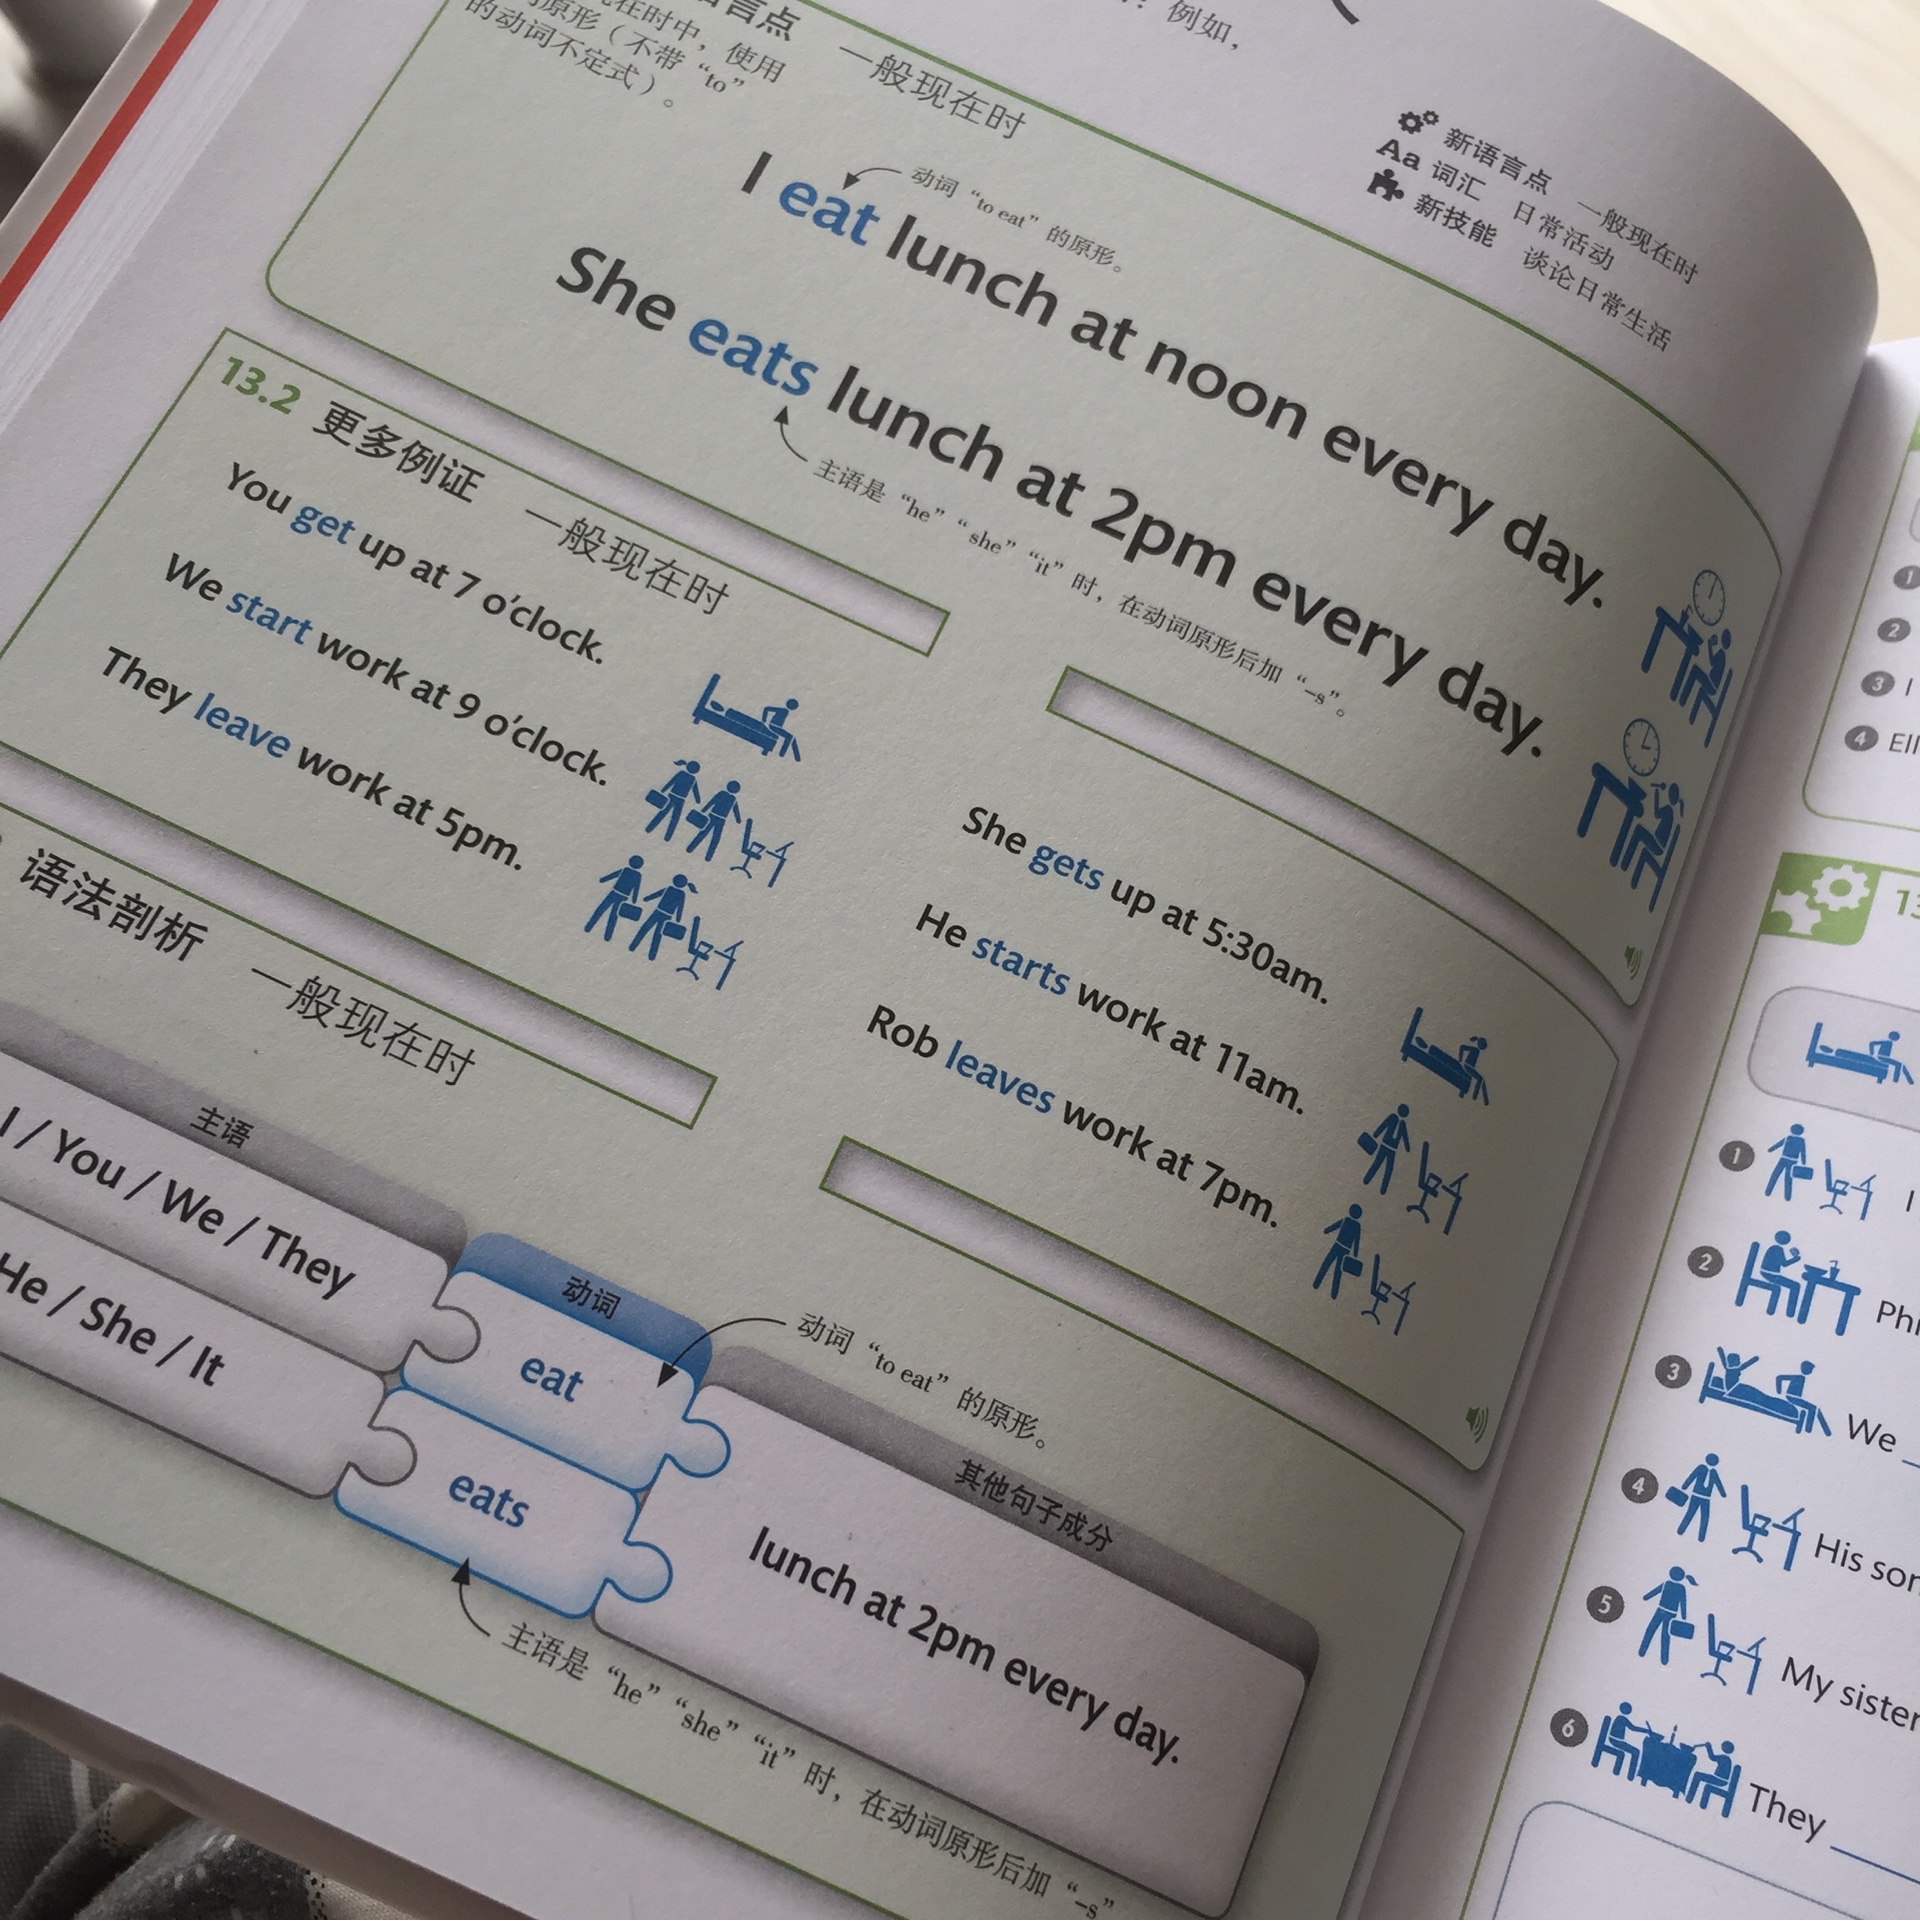 例如，
新语言点 一般现在时
Aa 词汇 日常活动
新技能 谈论日常生活
言点 一般现在时
在时中，使用
原形（不带“to”
的动词不定式）。
动词“to eat”的原形。
I eat lunch at noon every day.
She eats lunch at 2pm every day.
主语是“he”“she”“it”时，在动词原形后加“–s”。
13.2 更多例证 一般现在时
You get up at 7 o'clock.
We start work at 9 o'clock.
They leave work at 5pm.
She gets up at 5:30am.
He starts work at 11am.
Rob leaves work at 7pm.
语法剖析 一般现在时
主语
动词
其他句子成分
动词“to eat”的原形。
I / You / We / They
eat
He / She / It
eats
lunch at 2pm every day.
主语是“he”“she”“it”时，在动词原形后加“–s”
1
2
3 I
4 Ell
13
1 I
2 Ph
3 We
4 His son
5 My sister
6 They